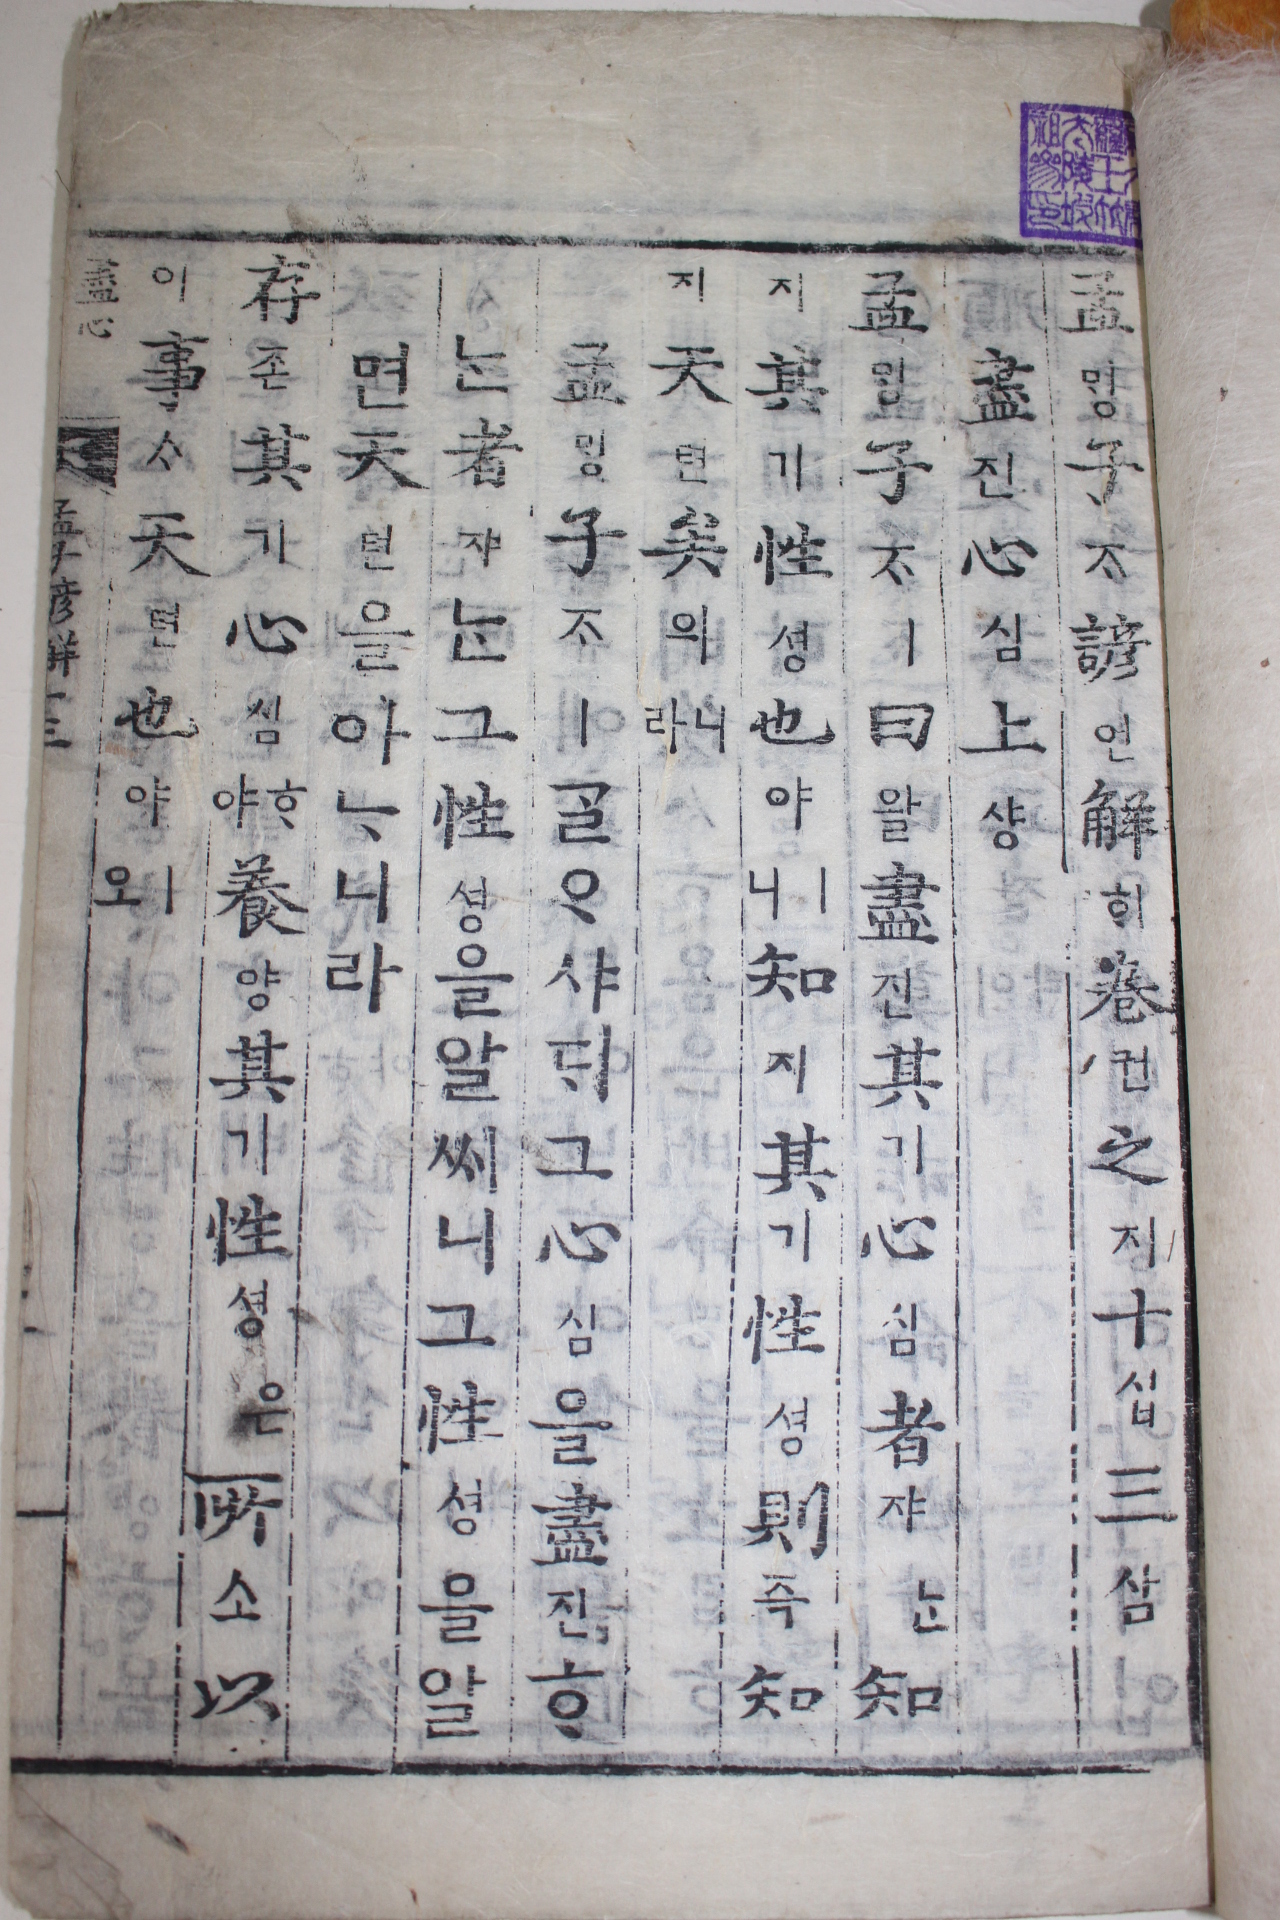 孟ᄆᆡᆼ子ᄌᆞ諺언解ᄒᆡ卷권之지十십三삼
盡진心심上샹
孟ᄆᆡᆼ子ᄌᆞㅣ曰왈盡진其기心심者쟈ᄂᆞᆫ知
지其기性셩也야ㅣ니知지其기性셩則즉知
지天텬矣의니라
孟ᄆᆡᆼ子ᄌᆞㅣᄀᆞᆯᄋᆞ샤ᄃᆡ그心심을盡진ᄒᆞ
ᄂᆞᆫ者쟈ᄂᆞᆫ그性셩을알씨니그性셩을알
면天텬을아ᄂᆞ니라
存존其기心심ᄒᆞ야養양其기性셩은所소以
이事ᄉᆞ天텬也야ㅣ오
盡心
孟子諺解十三